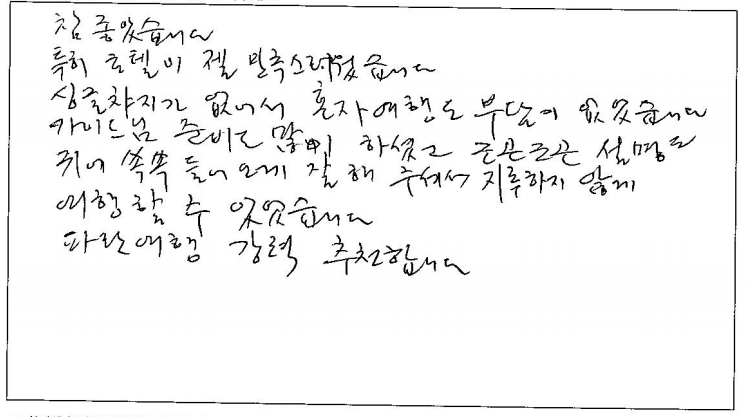 참 좋았습니다
특히 호텔이 젤 만족스러웠습니다
싱글챠지가 없어서 혼자여행도 부담이 없었습니다
가이드님 준비도 많이 하셨고 조곤조곤 설명도
귀에 쏙쏙 들어오게 잘 해 주셔서 지루하지 않게
여행할 수 있었습니다
파란여행 강력 추천합니다